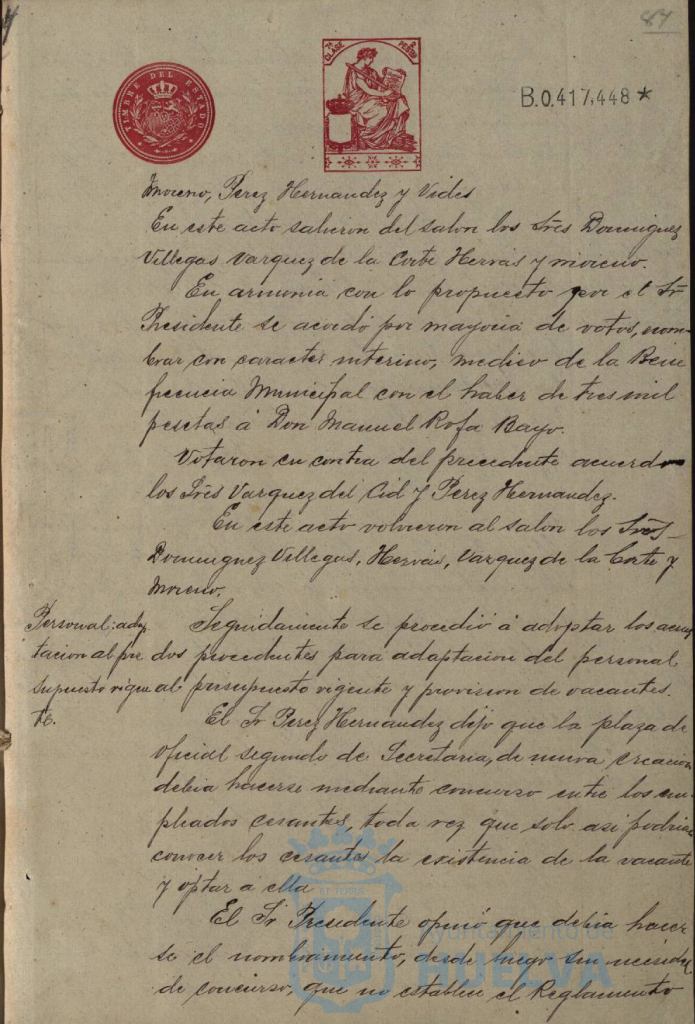 84
TIMBRE DEL ESTADO
7ª CLASE
2 PESETAS
B.0.417,448 *
Moreno, Perez Hernandez y Vides
En este acto salieron del salon los Srēs Dominguez
Villegas Vazquez de la Corte Hervás y Moreno.
En armonia con lo propuesto por el Sr
Presidente se acordó por mayoria de votos, nom-
brar con caracter interino, medico de la Bene
ficencia Municipal con el haber de tres mil
pesetas á Don Manuel Rofa Bayo.
Votaron en contra del precedente acuerdo
los Srēs Vazquez del Cid y Perez Hernandez.
En este acto volvieron al salon los Srēs
Dominguez Villegas, Hervás, Vazquez de la Corte y
Moreno.
Personal; adap
tacion al pre
supuesto vigen
te.
Seguidamente se procedió á adoptar los acuer
dos procedentes para adaptacion del personal
al presupuesto vigente y provision de vacantes.
El Sr Perez Hernandez dijo que la plaza de
oficial segundo de Secretaria, de nueva creacion
debia hacerse mediante concurso entre los em
pleados cesantes, toda vez que solo asi podrian
conocer los cesantes la existencia de la vacante
y optar á ella
El Sr Presidente opinó que debia hacer
se el nombramiento, desde luego sin necesidad
de concurso, que no establece el Reglamento
Ayuntamiento de
HUELVA